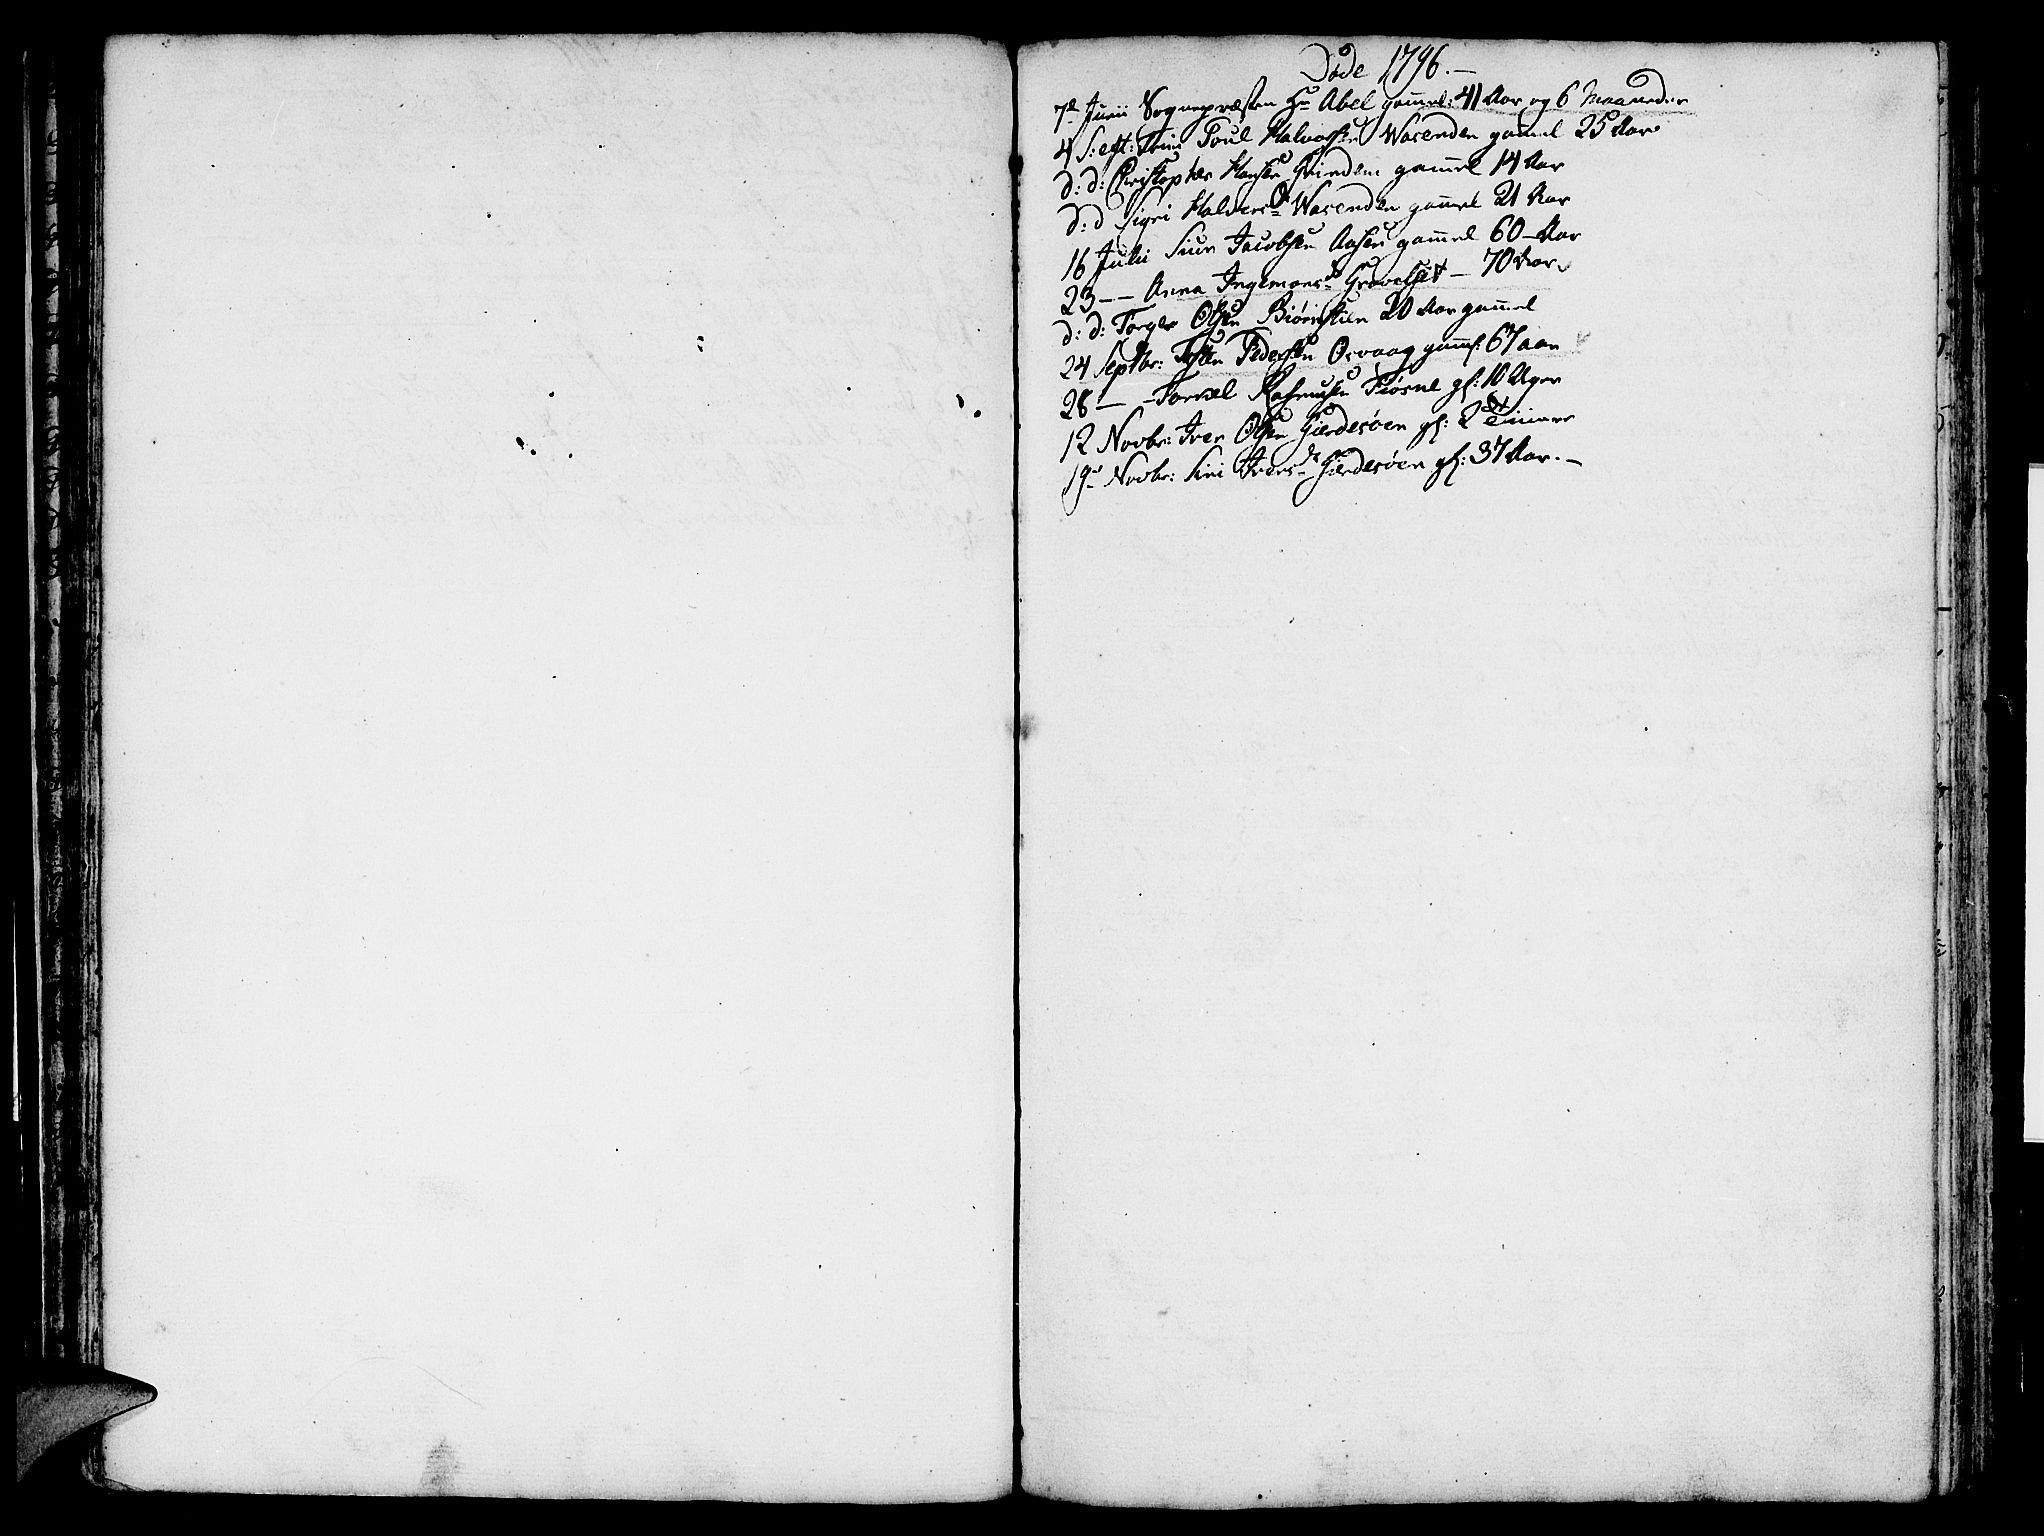 Døde 1796.—
7de Junii Sognepræsten Hr Abel gamel: 41 Aar og 6 Maaneder
4 S: eft: Trin: Poul Halvorsen Wasenden gamel 25 Aar
d: d: Christopher Hansen Grinden gamel 14 Aar
d: d Sigri Halversd Wasenden gamel 21 Aar
16 Julii Siur Jacobsen Aasen gamel 60 Aar
23 — — Anna Ingemorsd — 70 Aar
d: d: Torger Olsen 20 Aar gamel
24 Septbr: Pedersen Osvaag gaml: 67 aar
28 — — Torkel Rasmusen Fiøsne gl: 10 Uger
12 Novbr: Iver Olsen Gierdesøen gl: 2 Timer
19de Novbr: Siri Iversd Gierdesøen gl: 37 Aar. —